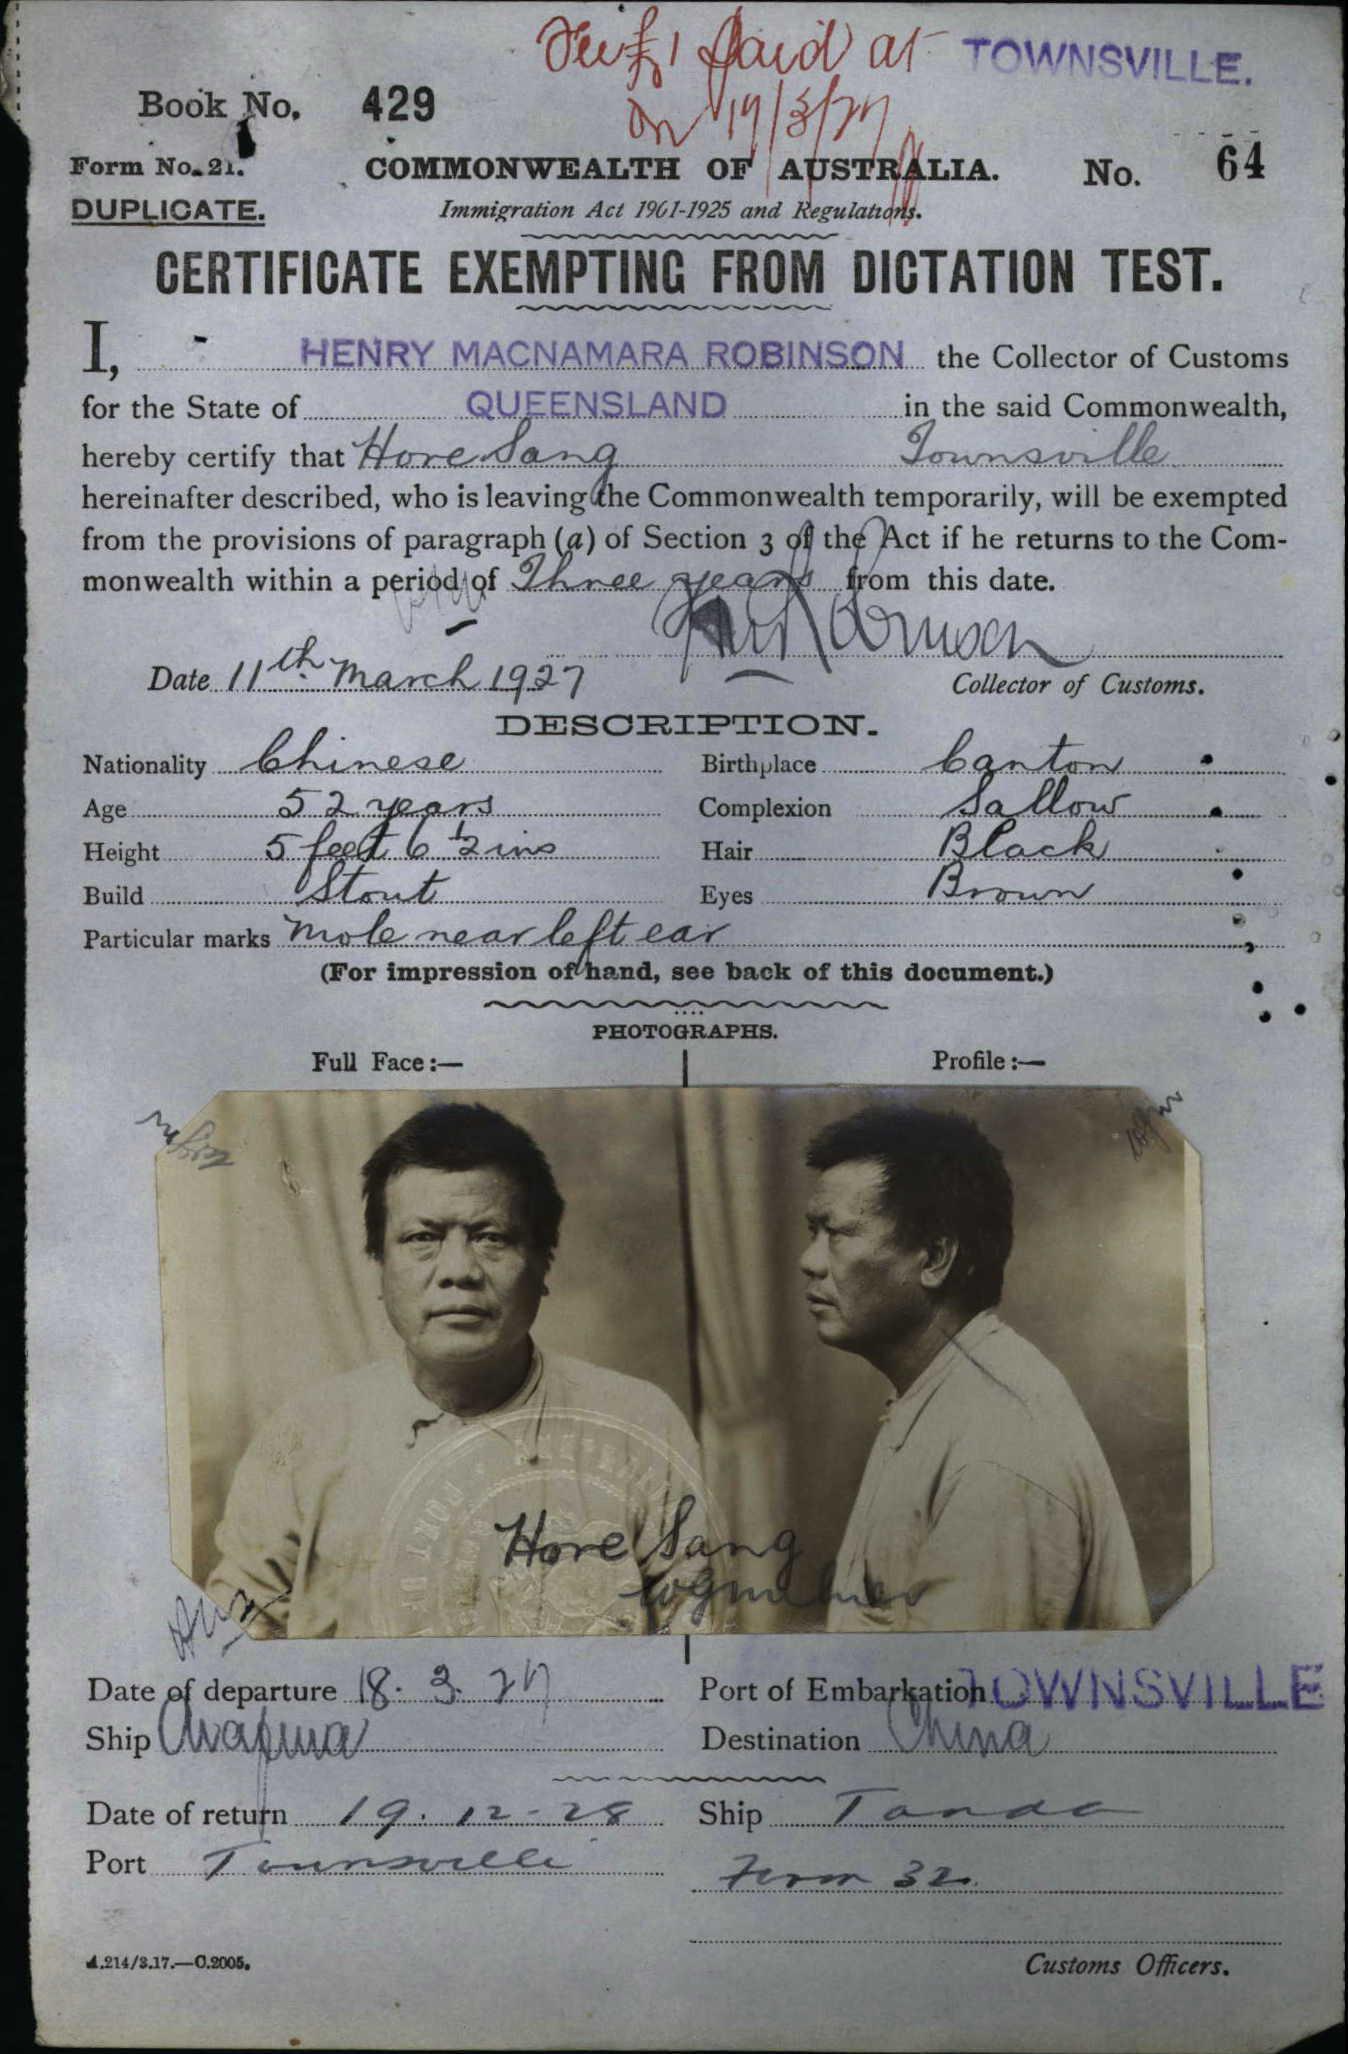 Fee £1 Paid at TOWNSVILLE.
on 19/3/27
Book No. 429
Form No. 21.
COMMONWEALTH OF AUSTRALIA.
No. 64
DUPLICATE.
Immigration Act 1901-1925 and Regulations.
CERTIFICATE EXEMPTING FROM DICTATION TEST.
I, HENRY MACNAMARA ROBINSON the Collector of Customs
for the State of QUEENSLAND in the said Commonwealth,
hereby certify that Hore Sang Townsville
hereinafter described, who is leaving the Commonwealth temporarily, will be exempted
from the provisions of paragraph (a) of Section 3 of the Act if he returns to the Com-
monwealth within a period of Three years from this date.
Date 11th March 1927
Collector of Customs.
DESCRIPTION.
Nationality Chinese Birthplace Canton
Age 52 years Complexion Sallow
Height 5 feet 6 1/2 ins Hair Black
Build Stout Eyes Brown
Particular marks Mole near left ear
(For impression of hand, see back of this document.)
PHOTOGRAPHS.
Full Face:— Profile:—
Hore Sang
Date of departure 18.3.27 Port of Embarkation TOWNSVILLE
Ship Destination China
Date of return 19.12-28 Ship Tanda
Port Townsville Form 32.
A.214/3.17.—C.2005.
Customs Officers.